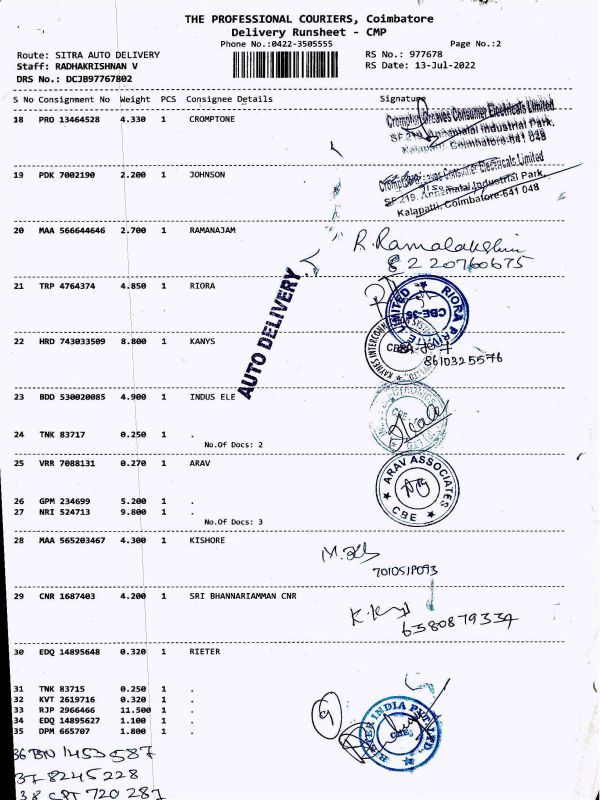 THE PROFESSIONAL COURIERS, Coimbatore
Delivery Runsheet - CMP
Phone No.:0422-3505555 Page No.:2
Route: SITRA AUTO DELIVERY RS No.: 977678
Staff: RADHAKRISHNAN V RS Date: 13-Jul-2022
DRS No.: DCJB97767802
S No Consignment No Weight PCS Consignee Details Signature
18 PRO 13464528 4.330 1 CROMPTONE
Crompton Greaves Consumer Electricals Limited
SF 219, Annamalai Industrial Park,
Kalapatti, Coimbatore-641 048
19 PDK 7002190 2.200 1 JOHNSON
Crompton Greaves Consumer Electricals Limited
SF 219, Annamalai Industrial Park,
Kalapatti, Coimbatore-641 048
20 MAA 566644646 2.700 1 RAMANAJAM
R. Ramalakshmi
8220760675
AUTO DELIVERY
21 TRP 4764374 4.850 1 RIORA
RIORA PRIVATE LIMITED
CBE-35
22 HRD 743033509 8.800 1 KANYS
8610325576
23 BDD 530020085 4.900 1 INDUS ELE
CBE
24 TNK 83717 0.250 1 .
No.Of Docs: 2
25 VRR 7088131 0.270 1 ARAV
ARAV ASSOCIATES
CBE
26 GPM 234699 5.200 1 .
27 NRI 524713 9.800 1 .
No.Of Docs: 3
28 MAA 565203467 4.300 1 KISHORE
29 CNR 1687403 4.200 1 SRI BHANNARIAMMAN CNR
6380879334
30 EDQ 14895648 0.320 1 RIETER
31 TNK 83715 0.250 1 .
32 KVT 2619716 0.320 1 .
33 RJP 2966466 11.500 1 .
34 EDQ 14895627 1.100 1 .
35 DPM 665707 1.800 1 .
9
RIETER INDIA PVT LTD.
36 BN 1453587
37 8245228
38 CPT 720287